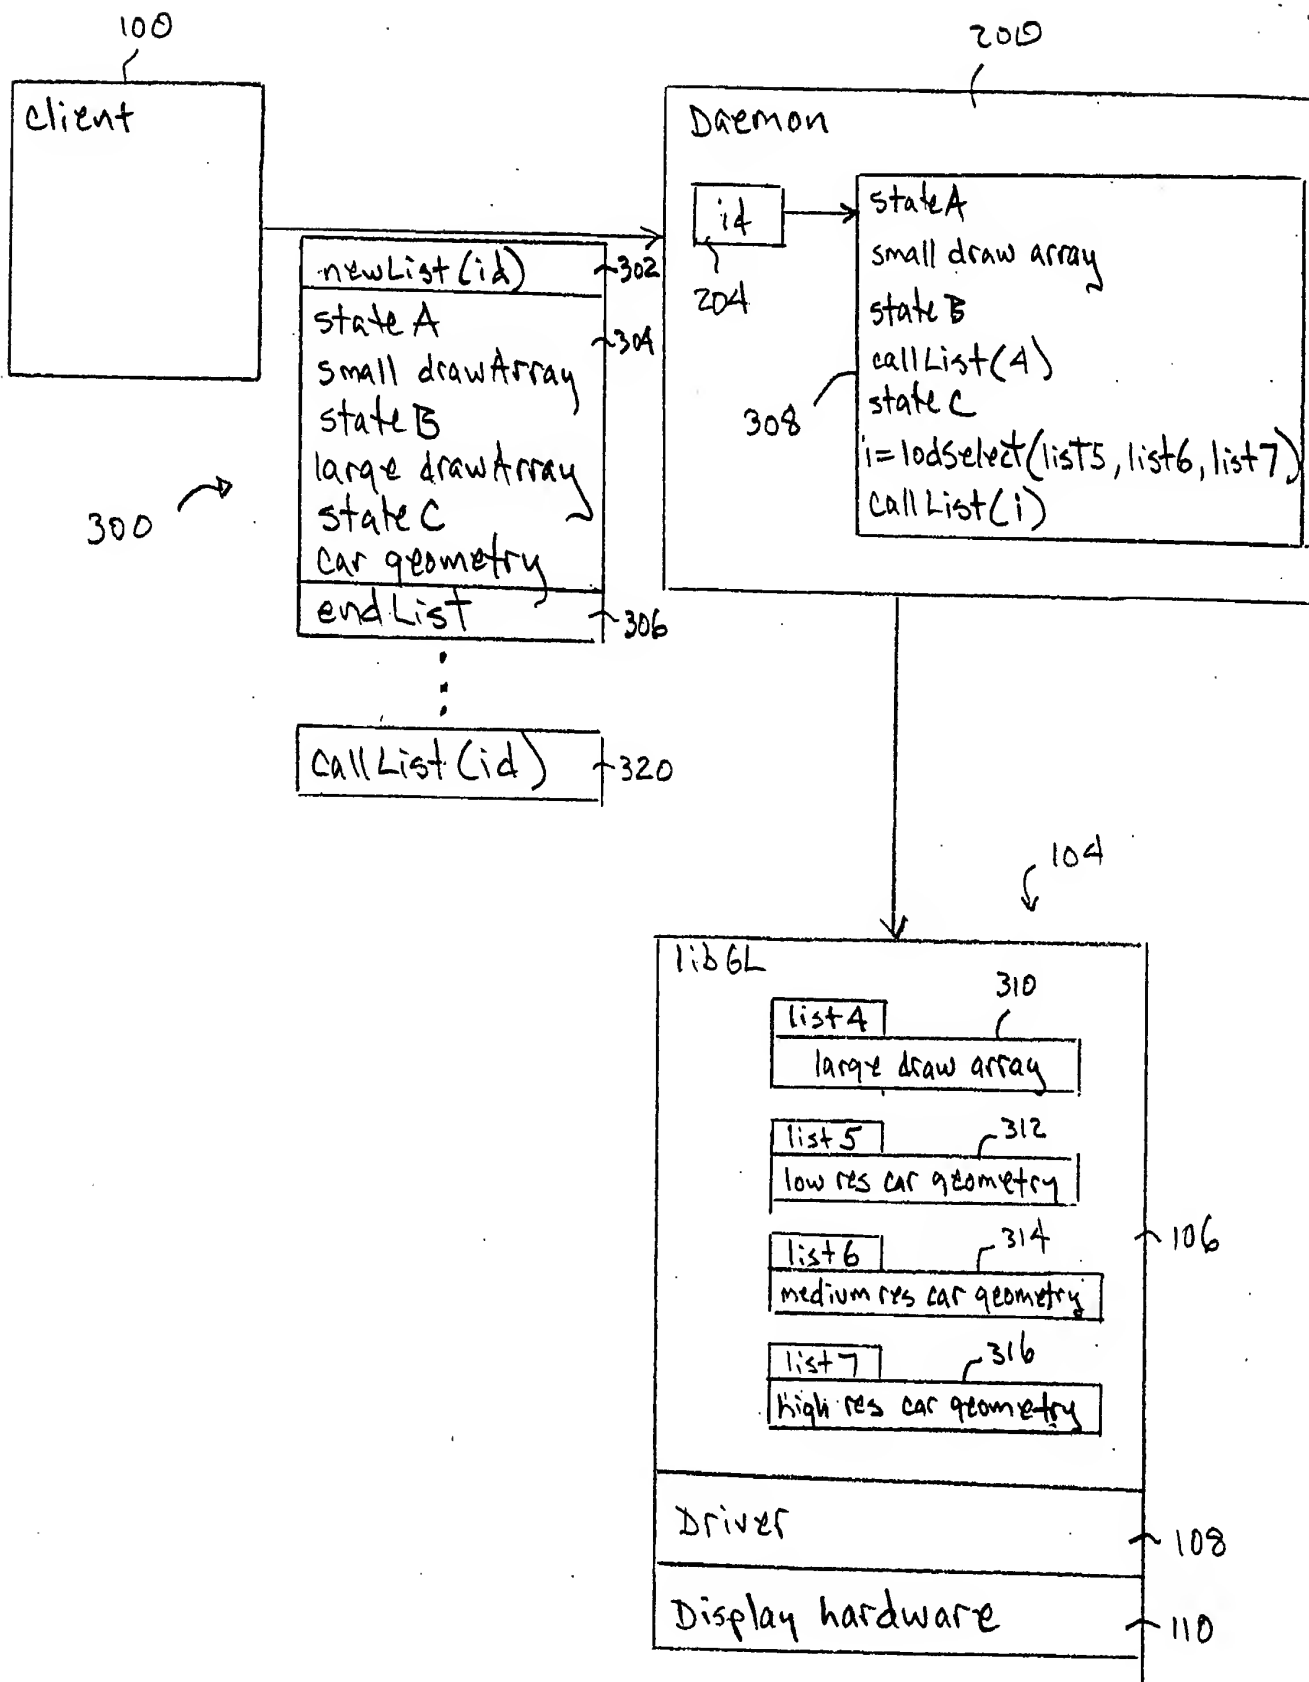 100
client
200
Daemon
id
204
state A
small draw array
state B
callList(4)
state C
i=lodSelect(list5, list6, list7)
callList(i)
308
newList(id)
302
state A
small drawArray
state B
large drawArray
state C
car geometry
304
endList
306
300
callList(id)
320
104
libGL
list 4
310
large draw array
list 5
312
low res car geometry
list 6
314
medium res car geometry
list 7
316
high res car geometry
106
Driver
108
Display hardware
110